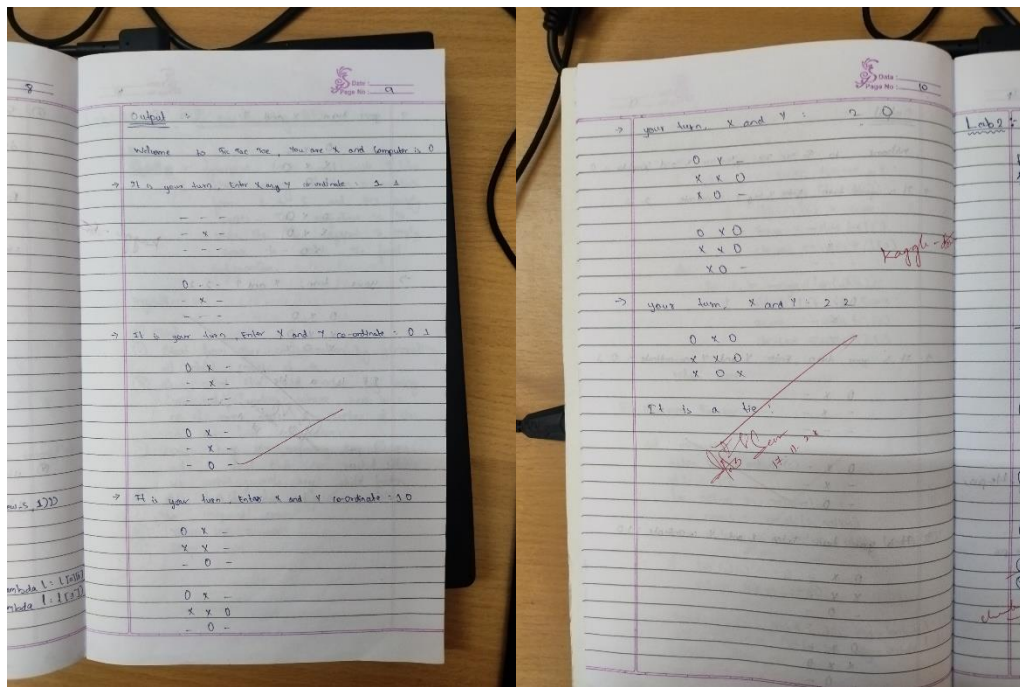 8
Date :
Page No : 9
Output :
Welcome to tic tac toe, You are X and Computer is O
→ It is your turn, Enter X any Y co-ordinate : 1 1
- - -
- x -
- - -
O - -
- x -
- - -
→ It is your turn, Enter X and Y co-ordinate : 0 1
O x -
- x -
- - -
O x -
- x -
- O -
→ It is your turn, Enter X and Y co-ordinate : 1 0
O x -
x x -
- O -
O x -
x x O
- O -
Date :
Page No : 10
→ your turn, X and Y : 2 0
O x -
x x O
x O -
O x O
x x O
x O -
→ your turn, X and Y : 2 2
O x O
x x O
x O x
It is a tie!
Lab2 :